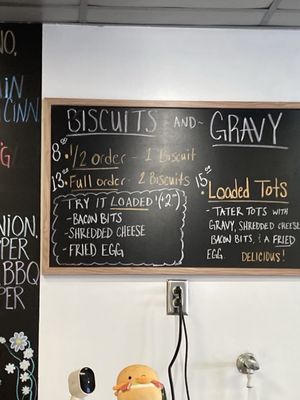 NO.
CINN
BISCUITS AND~ GRAVY
8.00 1/2 order - 1 Biscuit
13.00 Full order - 2 Biscuits
TRY IT LOADED! (+2.00)
- BACON BITS
- SHREDDED CHEESE
- FRIED EGG
15.00 Loaded Tots
- TATER TOTS WITH
GRAVY, SHREDDED CHEESE
BACON BITS, & A FRIED
EGG. DELICIOUS!
NION,
PER
BBQ
PER